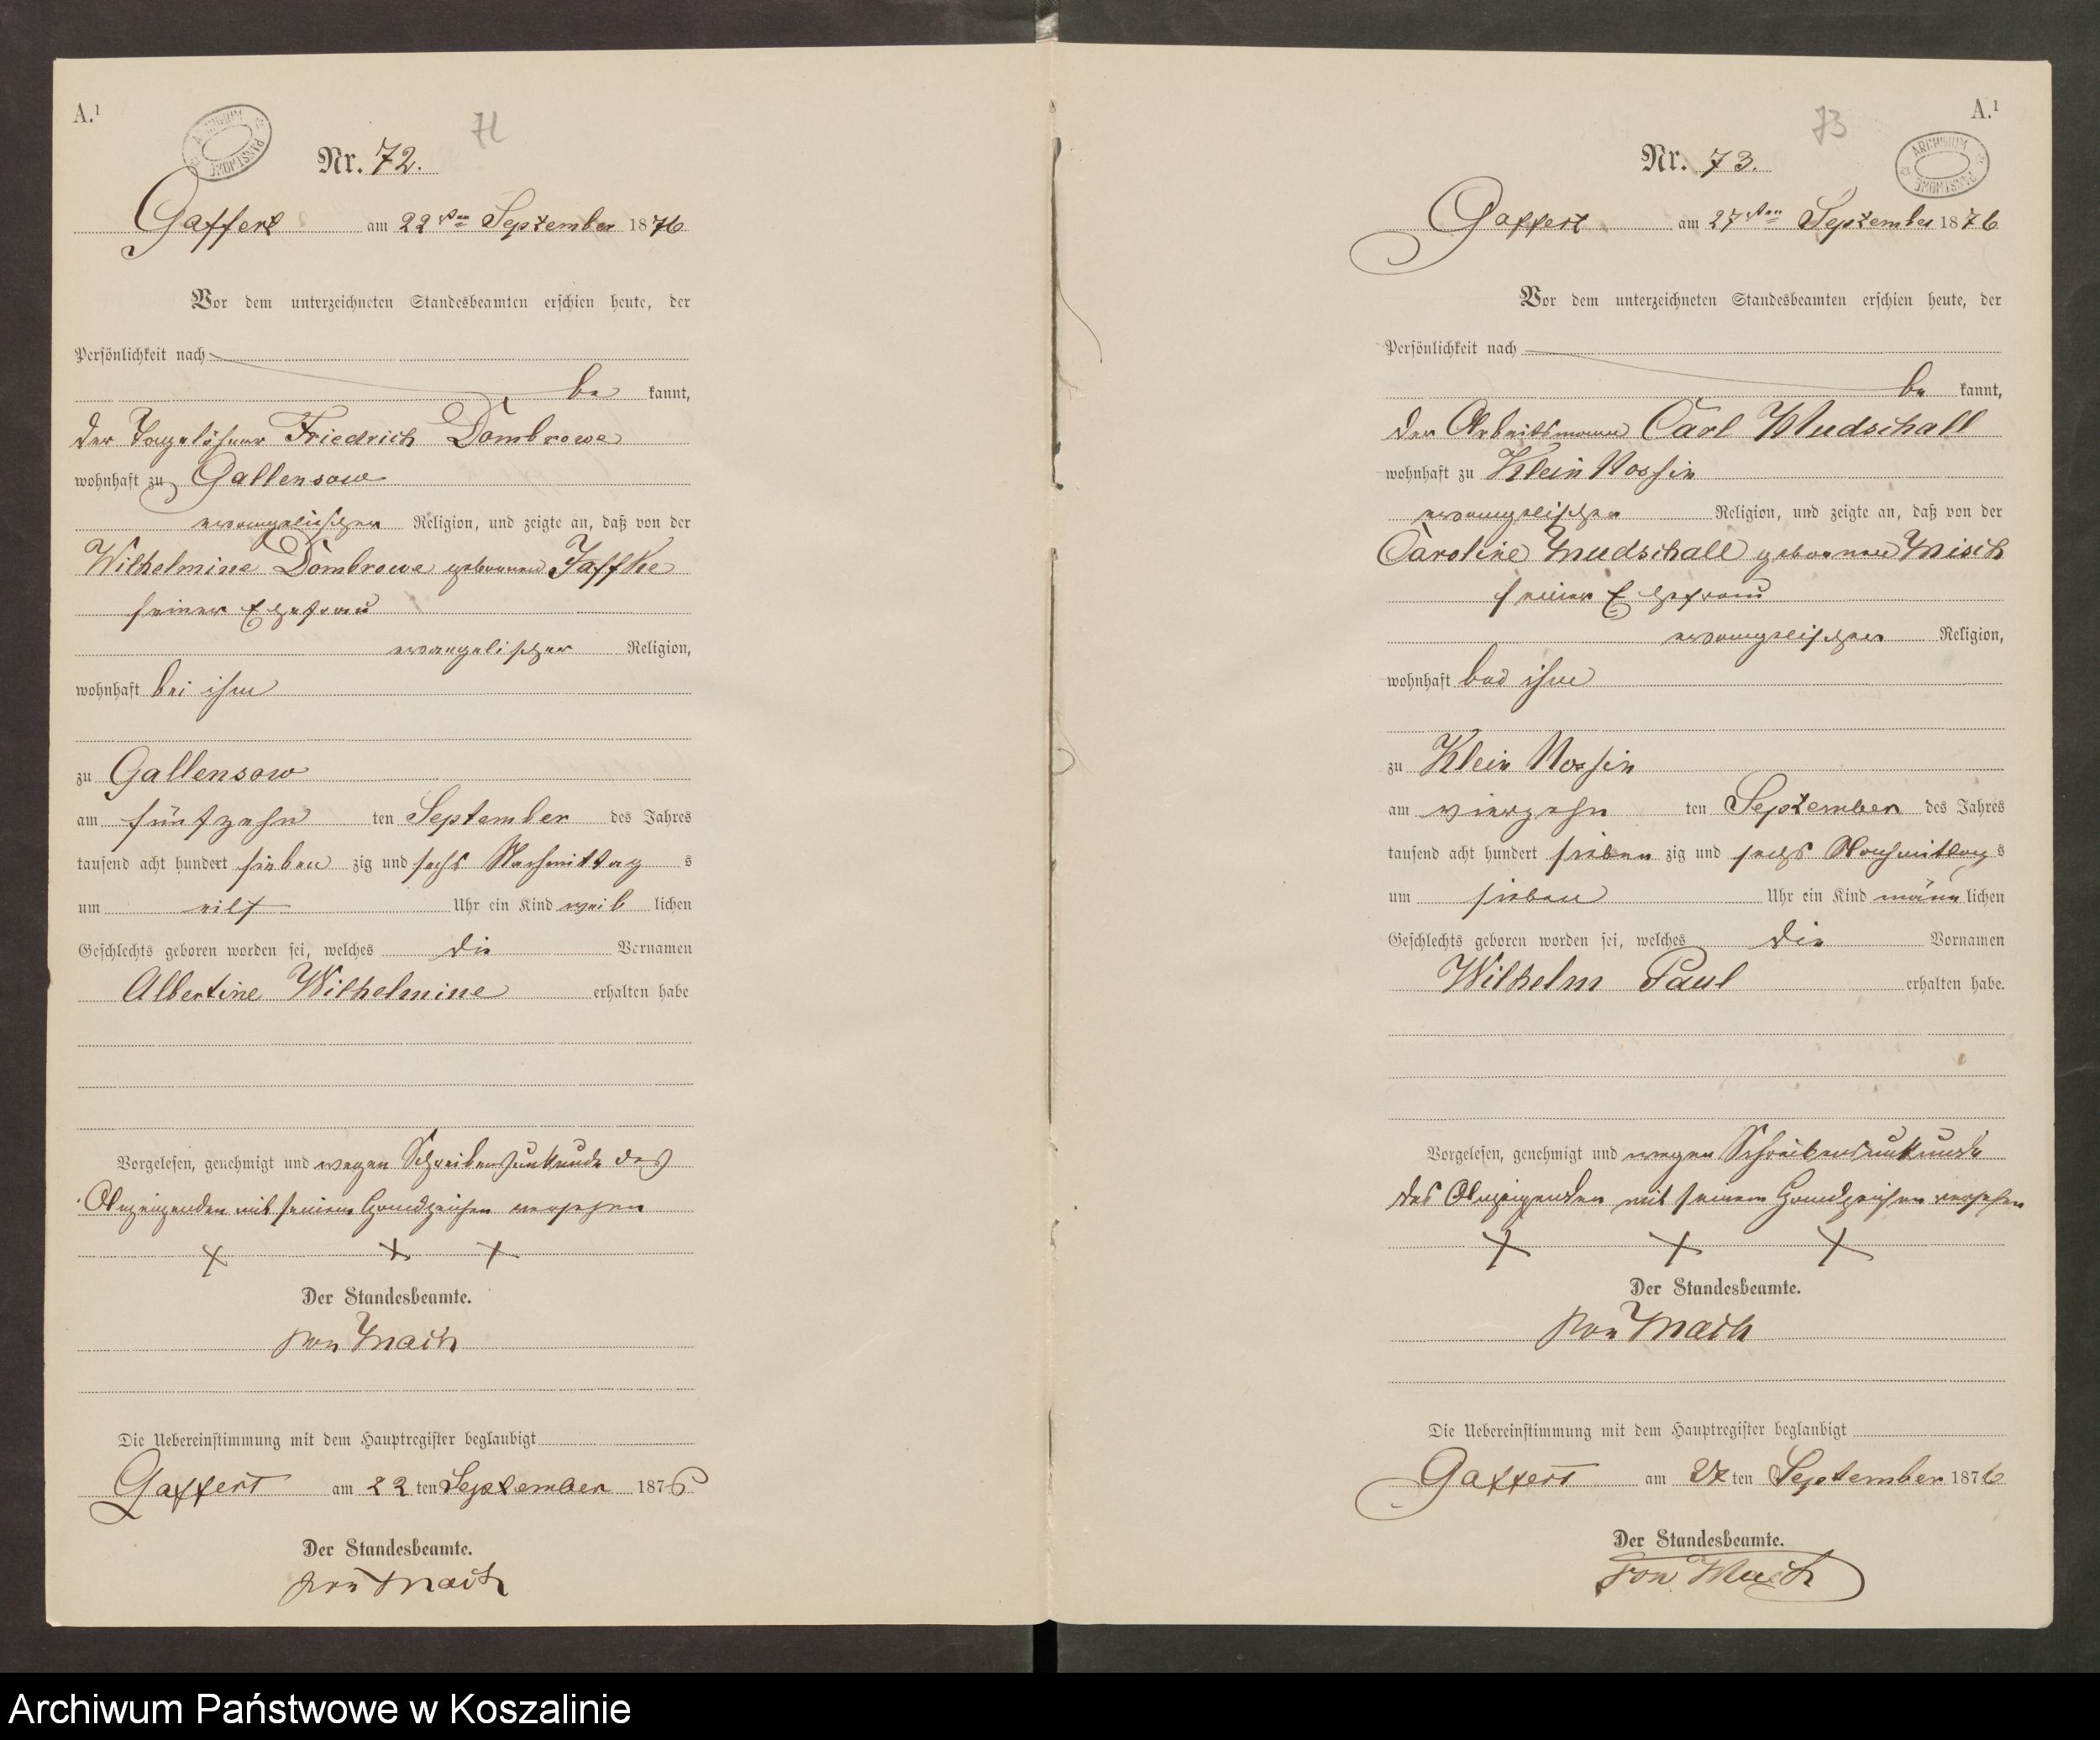 A.¹
ARCHIWUM PAŃSTWOWE
72
Nr. 72.
Gaffert am 22ten September 1876
Vor dem unterzeichneten Standesbeamten erschien heute, der
Persönlichkeit nach
be kannt,
der Tagelöhner Friedrich Dombrowe
wohnhaft zu Gallensow
evangelischer Religion, und zeigte an, daß von der
Wilhelmine Dombrowe geborenen Jaffke
seiner Ehefrau
evangelischer Religion,
wohnhaft bei ihm
zu Gallensow
am fünfzehn ten September des Jahres
tausend acht hundert sieben zig und sechs Nachmittag s
um elf Uhr ein Kind weib lichen
Geschlechts geboren worden sei, welches die Vornamen
Albertine Wilhelmine erhalten habe
Vorgelesen, genehmigt und wegen Schreibensunkunde des
Anzeigenden mit seinem Handzeichen versehen
+ + +
Der Standesbeamte.
von Mach
Die Uebereinstimmung mit dem Hauptregister beglaubigt
Gaffert am 22 ten September 1876
Der Standesbeamte.
von Mach
A.¹
ARCHIWUM PAŃSTWOWE
73
Nr. 73.
Gaffert am 27ten September 1876
Vor dem unterzeichneten Standesbeamten erschien heute, der
Persönlichkeit nach
be kannt,
der Arbeitsmann Carl Mudschall
wohnhaft zu Klein Nossin
evangelischer Religion, und zeigte an, daß von der
Caroline Mudschall geborenen Misch
seiner Ehefrau
evangelischer Religion,
wohnhaft bei ihm
zu Klein Nossin
am vierzehn ten September des Jahres
tausend acht hundert sieben zig und sechs Nachmittag s
um sieben Uhr ein Kind männ lichen
Geschlechts geboren worden sei, welches die Vornamen
Wilhelm Paul erhalten habe.
Vorgelesen, genehmigt und wegen Schreibensunkunde
des Anzeigenden mit seinem Handzeichen versehen
+ + +
Der Standesbeamte.
von Mach
Die Uebereinstimmung mit dem Hauptregister beglaubigt
Gaffert am 27 ten September 1876
Der Standesbeamte.
von Mach
Archiwum Państwowe w Koszalinie